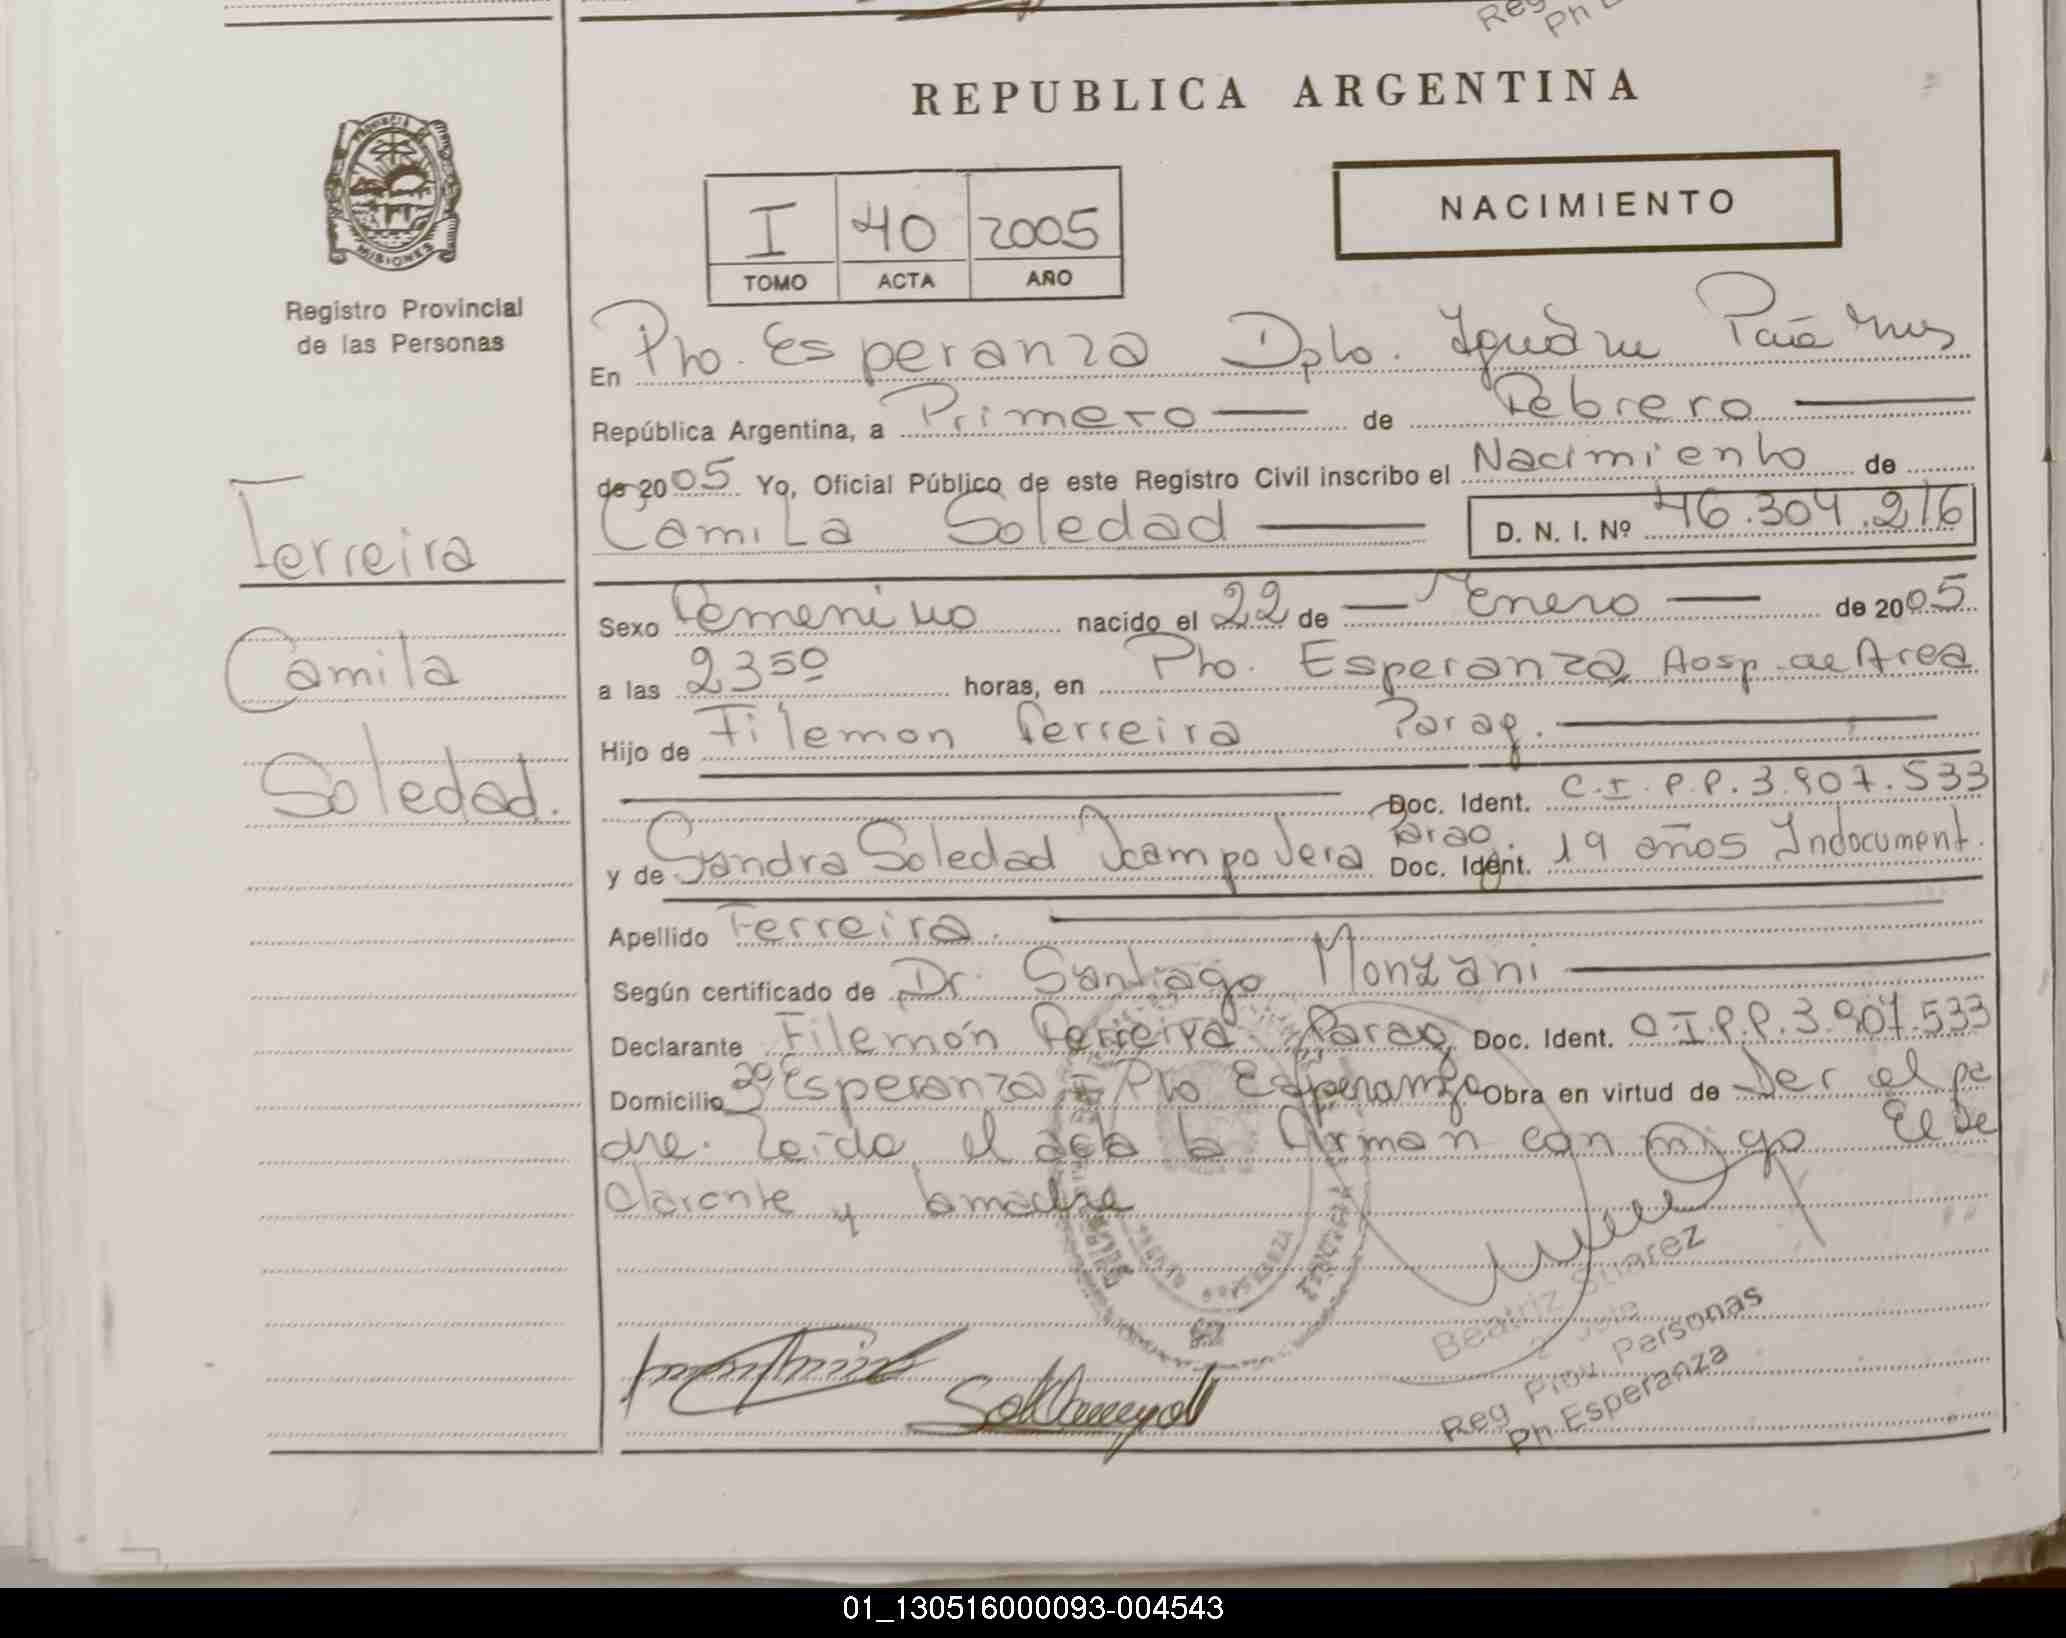 Reg
Ph E
PROVINCIA DE
MISIONES
Registro Provincial
de las Personas
Ferreira
Camila
Soledad.
REPUBLICA ARGENTINA
I 40 2005
TOMO ACTA AÑO
NACIMIENTO
En Pto. Esperanza Dpto. Iguazu Pcia Mnes
República Argentina, a Primero de Febrero
de 2005 Yo, Oficial Público de este Registro Civil inscribo el Nacimiento de
Camila Soledad D. N. I. Nº 46.304.216
Sexo Femenino nacido el 22 de Enero de 2005
a las 23 50 horas, en Pto. Esperanza Hosp. de Area
Hijo de Filemon Ferreira Parag.
Doc. Ident. C.I.P.P. 3.907.533
y de Sandra Soledad Ocampo Vera Parag. Doc. Ident. 19 años Indocument.
Apellido Ferreira.
Según certificado de Dr. Santiago Monzani
Declarante Filemón Ferreira Parag Doc. Ident. C.I.P.P. 3.907.533
Domicilio Bº Esperanza - Pto Esperanza Obra en virtud de Ser el pa
dre. Leida el acta la firman con migo El De
clarante y la madre
Beatriz Suarez
Reg Prov. Personas
Ph Esperanza
01_130516000093-004543